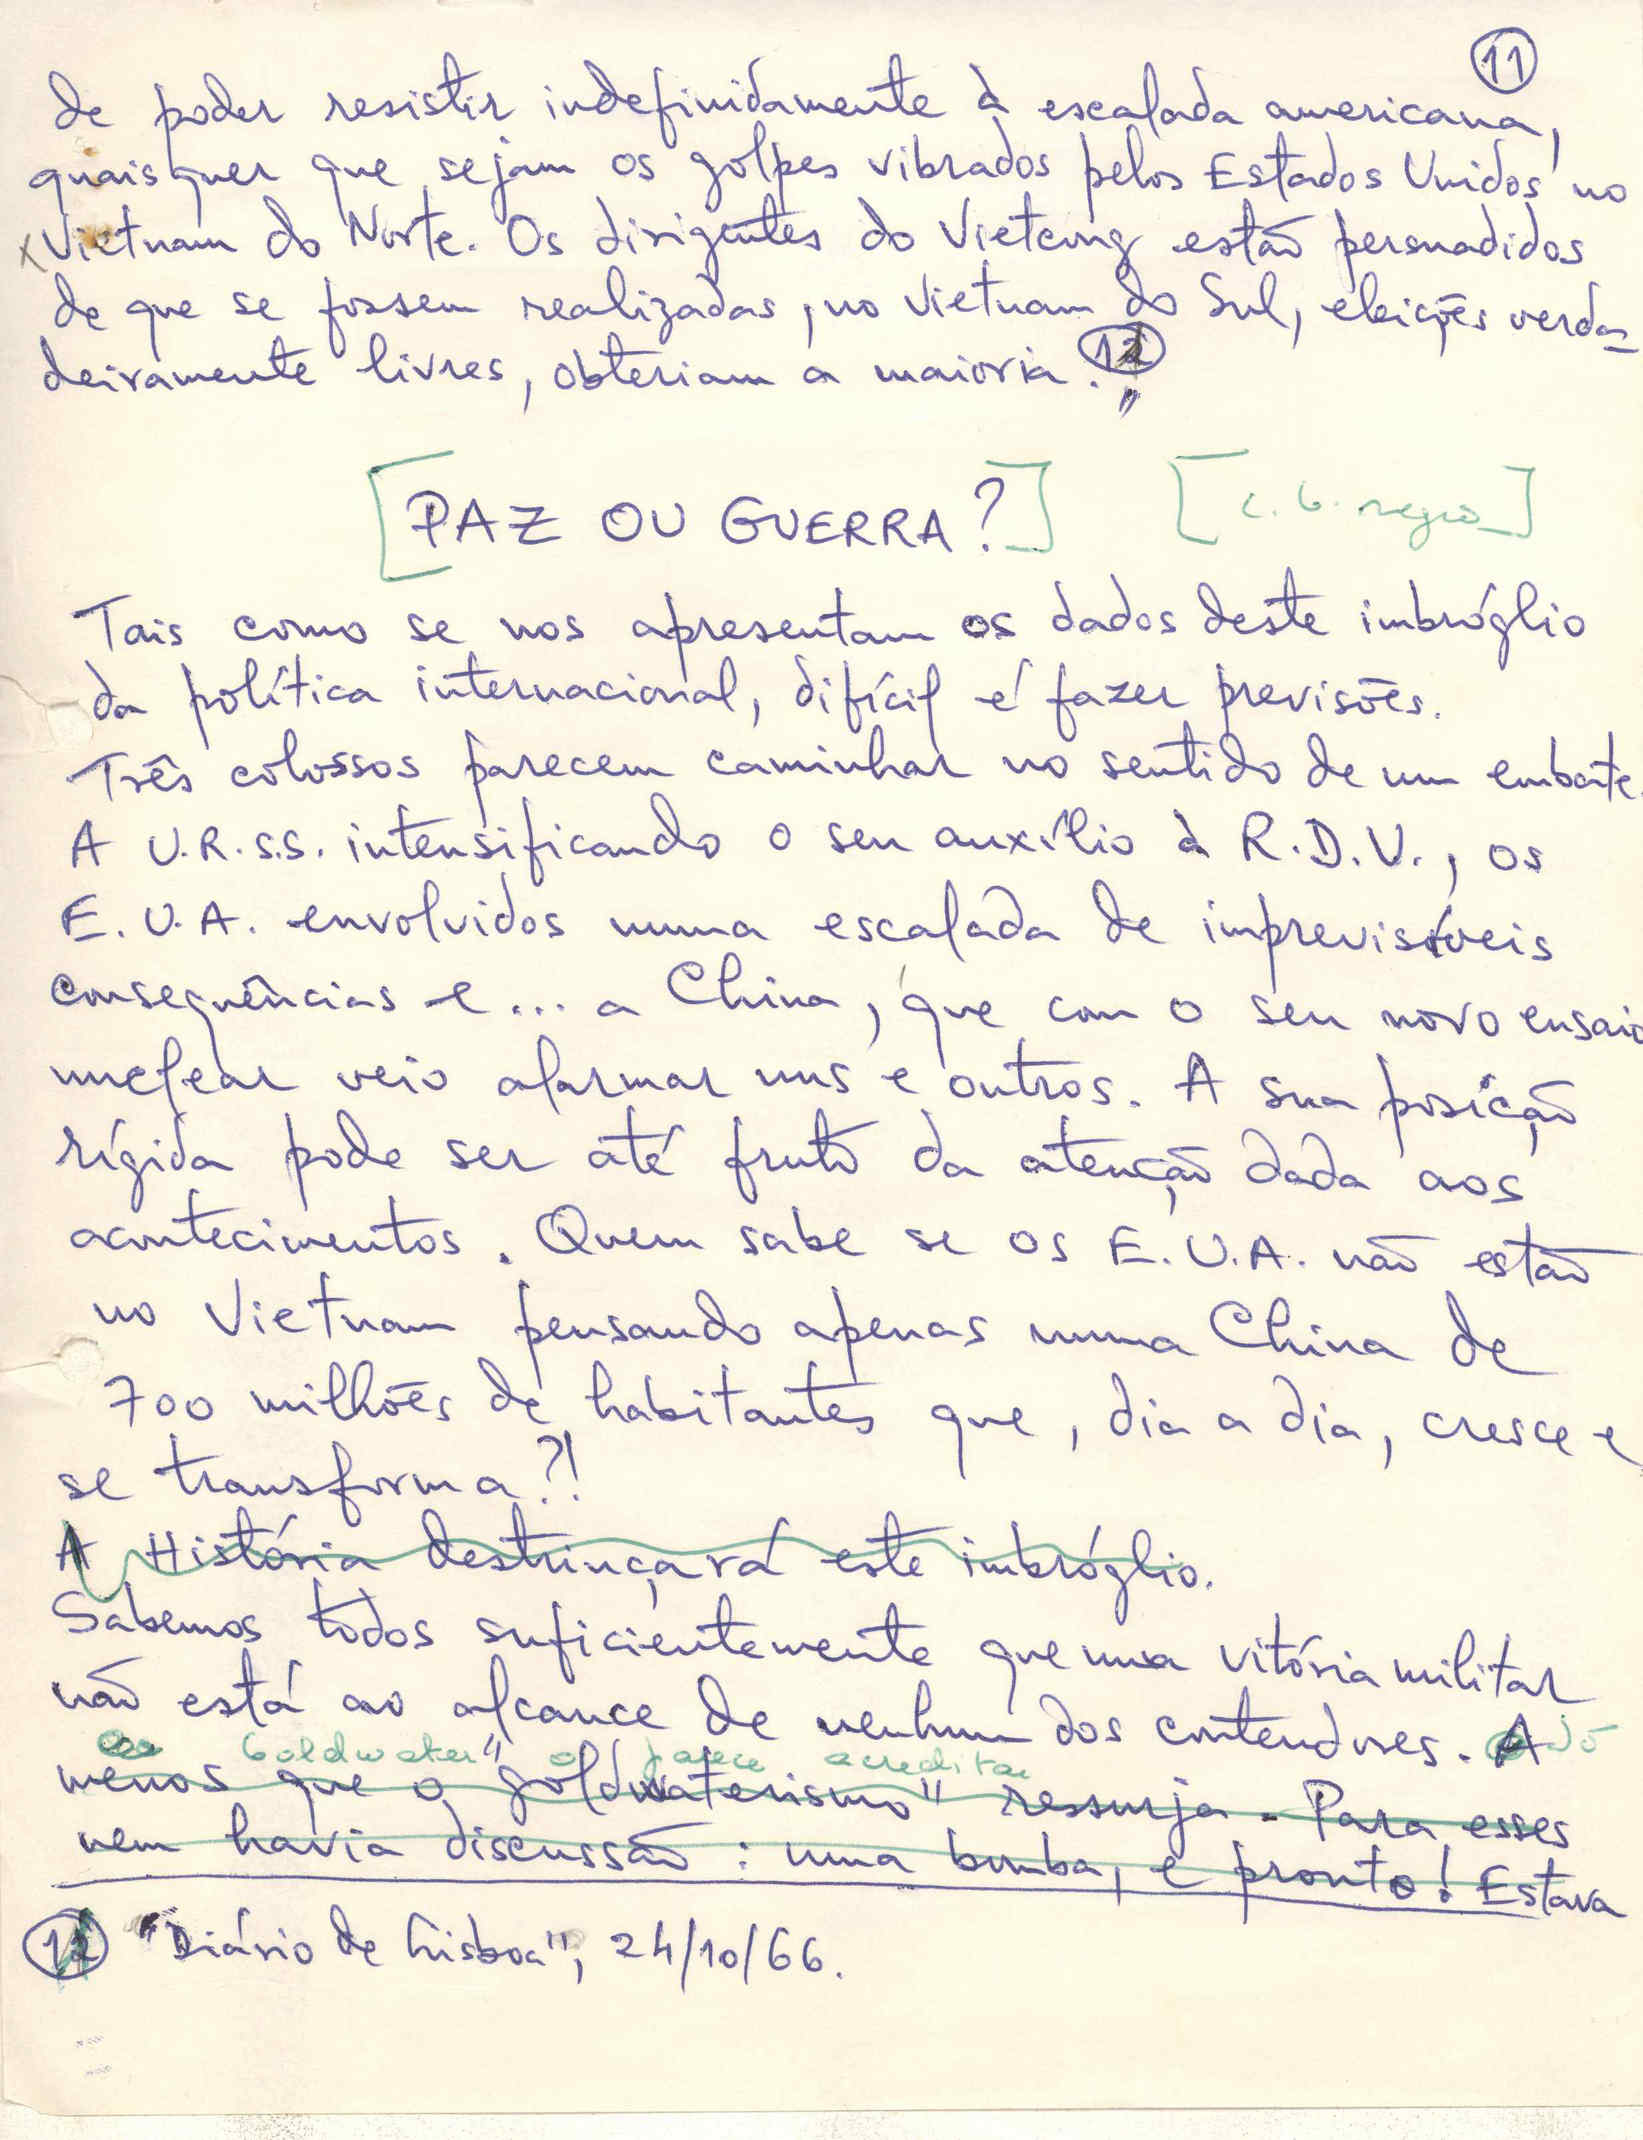 11
de poder resistir indefinidamente à escalada americana,
quaisquer que sejam os golpes vibrados pelos Estados Unidos no
x Vietnam do Norte. Os dirigentes do Vietcong estão persuadidos
de que se fossem realizadas, no Vietnam do Sul, eleições verda-
deiramente livres, obteriam a maioria. 12"
[PAZ OU GUERRA?] [c. 6. negro]
Tais como se nos apresentam os dados deste imbróglio
da política internacional, difícil é fazer previsões.
Três colossos parecem caminhar no sentido de um embate.
A U.R.S.S. intensificando o seu auxílio à R.D.V., os
E.U.A. envolvidos numa escalada de imprevisíveis
consequências e... a China, que com o seu novo ensaio
nuclear veio alarmar uns e outros. A sua posição
rígida pode ser até fruto da atenção dada aos
acontecimentos. Quem sabe se os E.U.A. não estão
no Vietnam pensando apenas numa China de
700 milhões de habitantes que, dia a dia, cresce e
se transforma?!
A História destrinçará este imbróglio.
Sabemos todos suficientemente que uma vitória militar
não está ao alcance de nenhum dos contendores. A Só
Goldwater o parece acreditar
menos que o "goldwaterismo" ressurja. Para esses
nem havia discussão: uma bomba, e pronto! Estava
12 "Diário de Lisboa", 24/10/66.